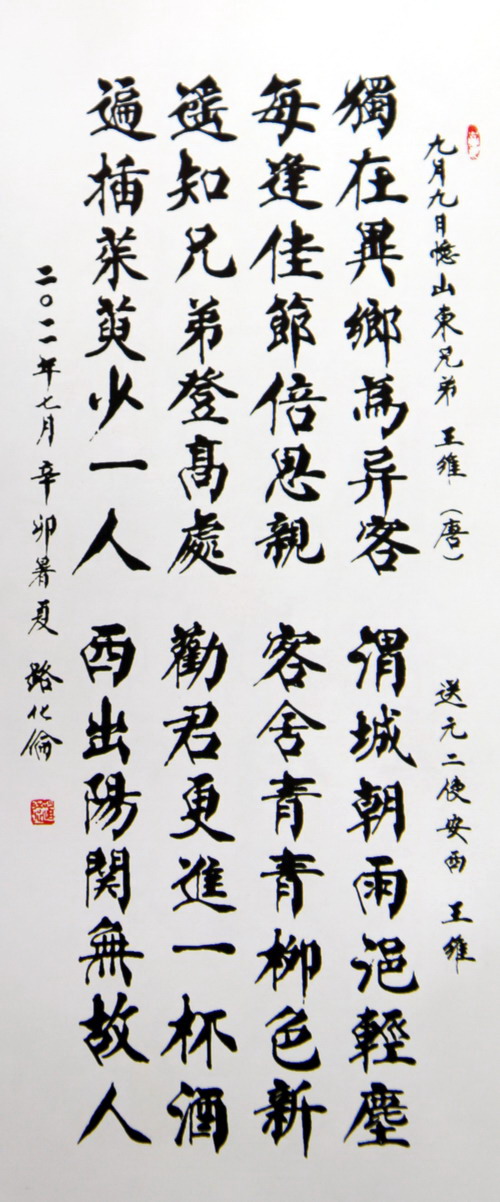 九月九日憶山東兄弟 王維 （唐）
獨在異鄉為异客
每逢佳節倍思親
遙知兄弟登髙處
遍插茱萸少一人
送元二使安西 王維
渭城朝雨浥輕塵
客舍青青柳色新
勸君更進一杯酒
西出陽関無故人
二〇一一年七月辛卯暑夏 路化倫